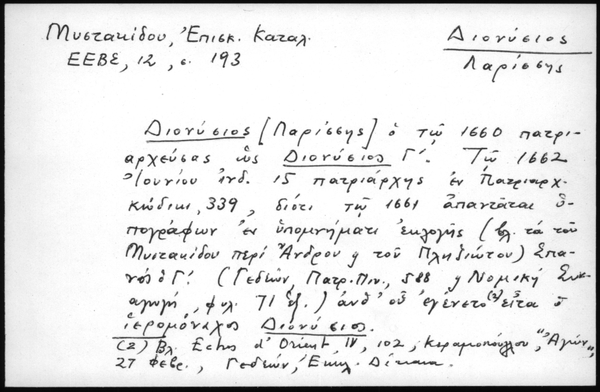 Μυστακίδου, Ἐπισκ. Καταλ.
ΕΕΒΣ, 12, σ. 193
Διονύσιος
Λαρίσσης
Διονύσιος [Λαρίσσης] ὁ τῷ 1660 πατρι-
αρχεύσας ὡς Διονύσιος Γ΄. Τῷ 1662
Ἰουνίου ἰνδ. 15 πατριάρχης ἐν Πατριαρχ.
κώδικι, 339, διότι τῷ 1661 ἀπαντᾶται ὑ-
πογράφων ἐν ὑπομνήματι ἐκλογῆς (βλ. τὰ τοῦ
Μυστακίδου περὶ Ἄνδρου καὶ τοῦ Πληθιώτου) Σπα-
νὸς ὁ Γ΄. (Γεδεών, Πατρ. Πιν., 588 καὶ Νομικὴ Συν-
αγωγή, φυλ. 71 ἑξ.) ἀνθ' οὗ ἐγένετο (2) εἶτα ὁ
ἱερομόναχος Διονύσιος.
(2) Βλ. Echos d'Orient IV, 102, Κεραμοπούλου, "Ἀγών",
27 Φεβρ., Γεδεών, Ἐκκλ. Δίκαια.